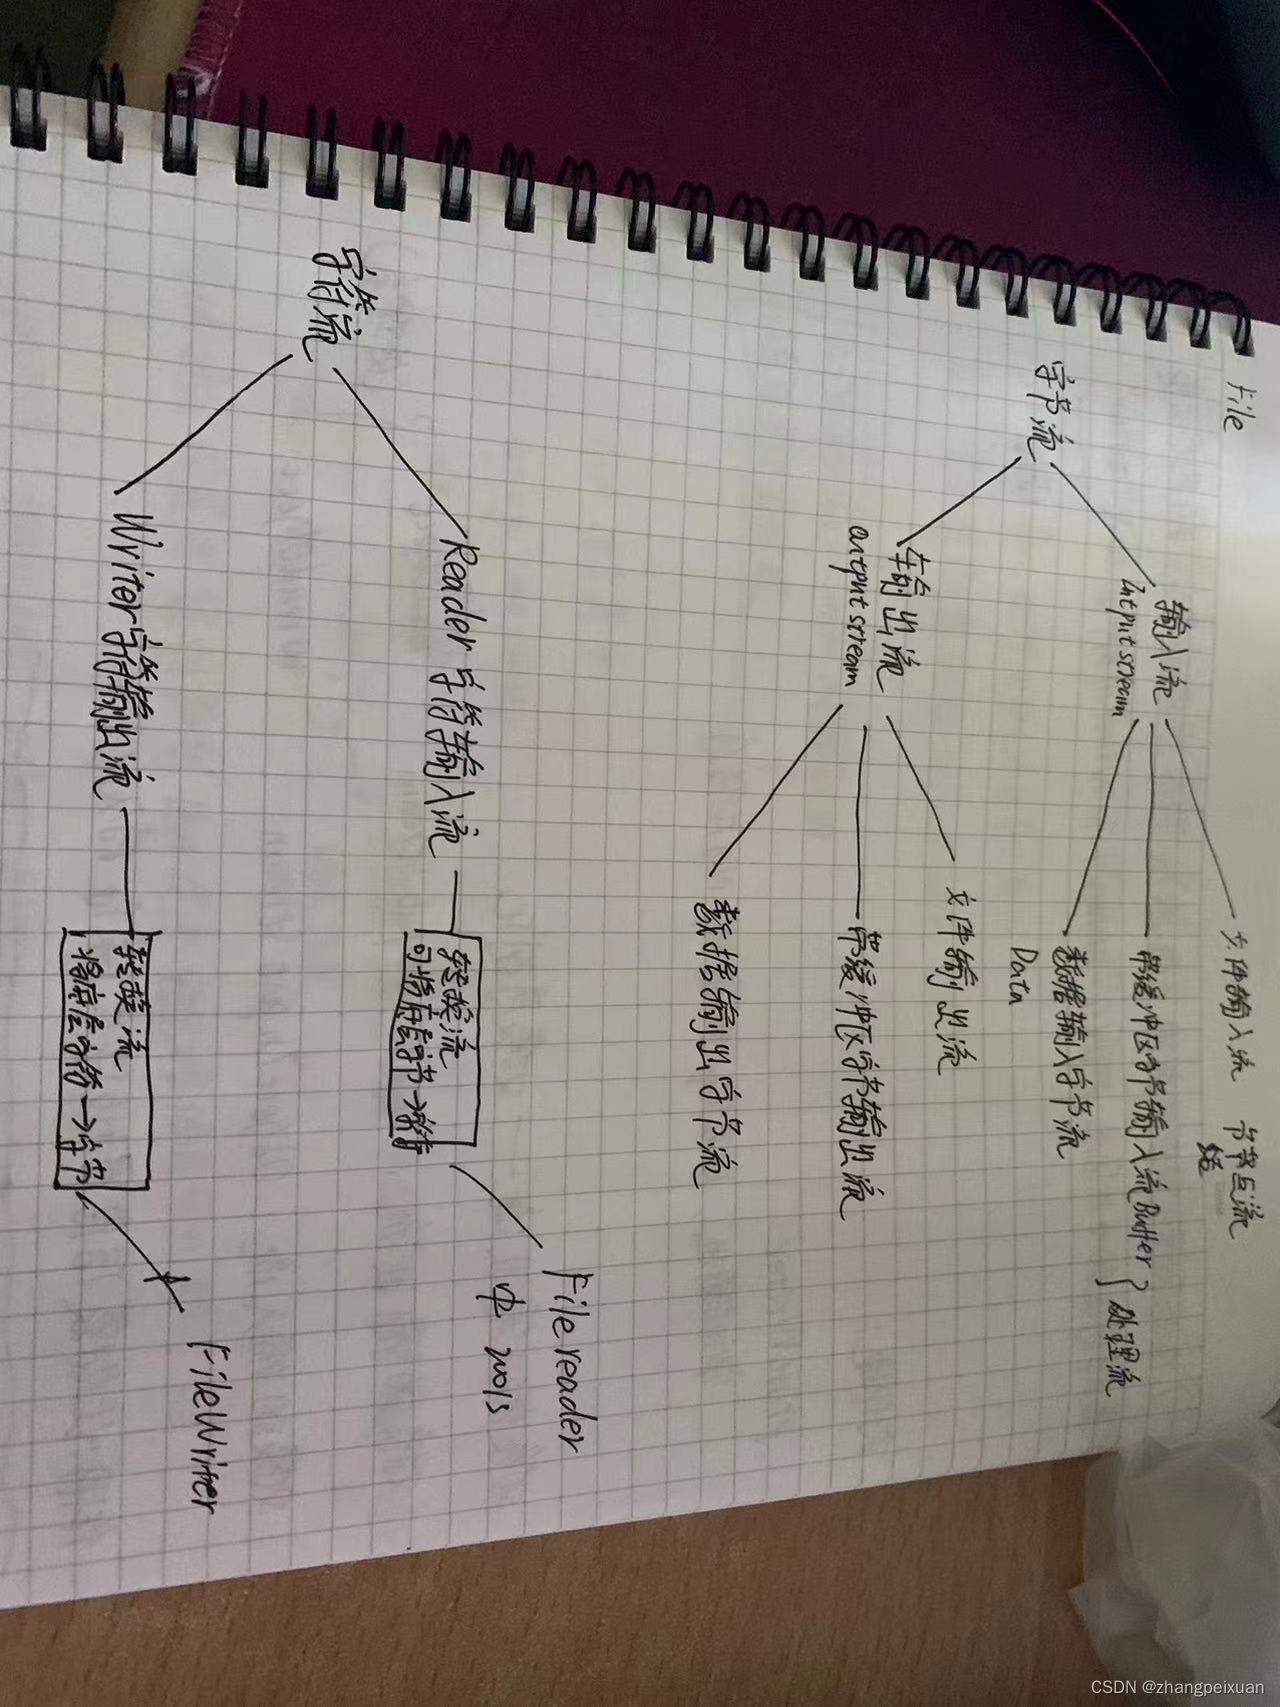 File
字节流
输入流
Intputstream
文件输入流
带缓冲区字节输入流Buffer
处理流
数据输入字节流
Data
输出流
outputstream
文件输出流
带缓冲区字节输出流
数据输出字节流
字符流
Reader字符输入流
转换流
Filereader
Writer字符输出流
转换流
将底层字符→字节
FileWriter
CSDN @zhangpeixuan